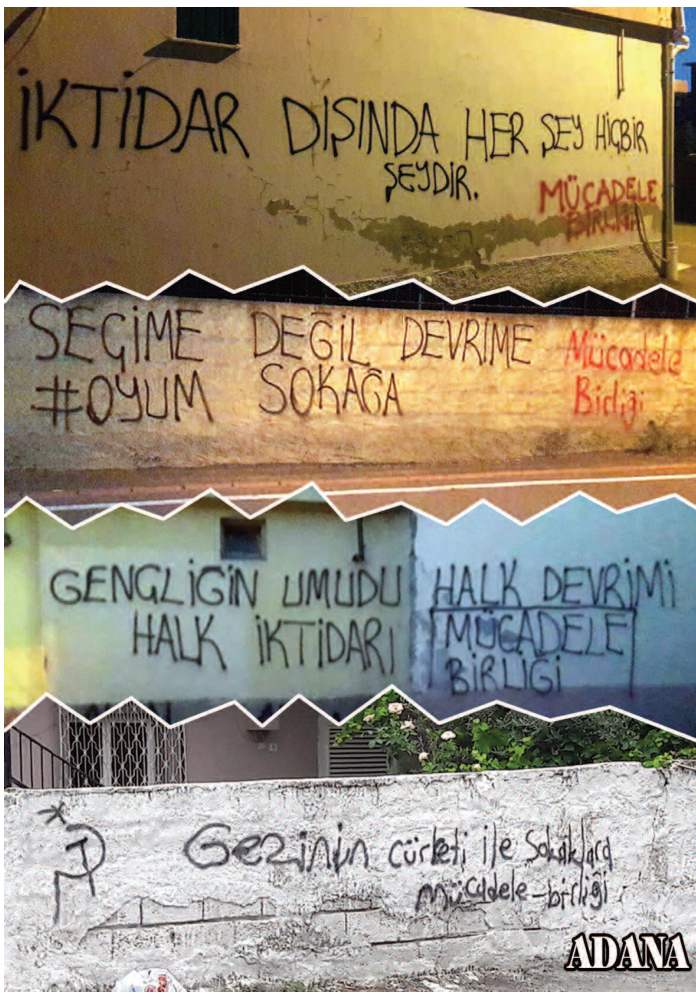 İKTİDAR DIŞINDA HER ŞEY HİÇBİR
ŞEYDİR.
MÜCADELE
BİRLİĞİ
SEÇİME DEĞİL DEVRİME
#OYUM SOKAĞA
Mücadele
Birliği
GENÇLİGİN UMUDU
HALK İKTİDARI
HALK DEVRİMİ
MÜCADELE
BİRLİĞİ
Gezinin cürketi ile Sokaklara
mücadele-birliği
ADANA